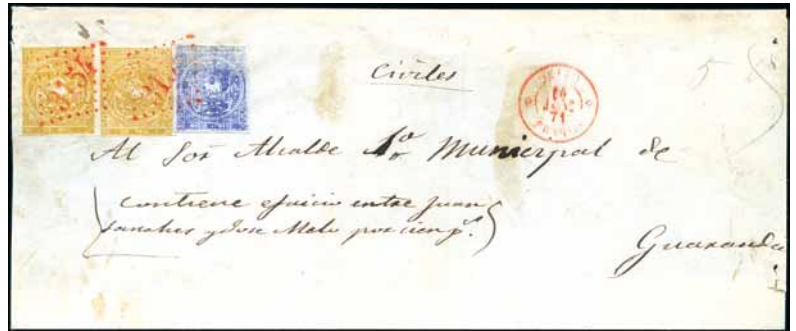 3154
Civiles
QUITO
16
71
FRANCA
5
Al Sor Alcalde 1o Municipal de
(contiene ejuicio entre Juan
Sanches y Jose Melo por cien ps.)
Guaranda